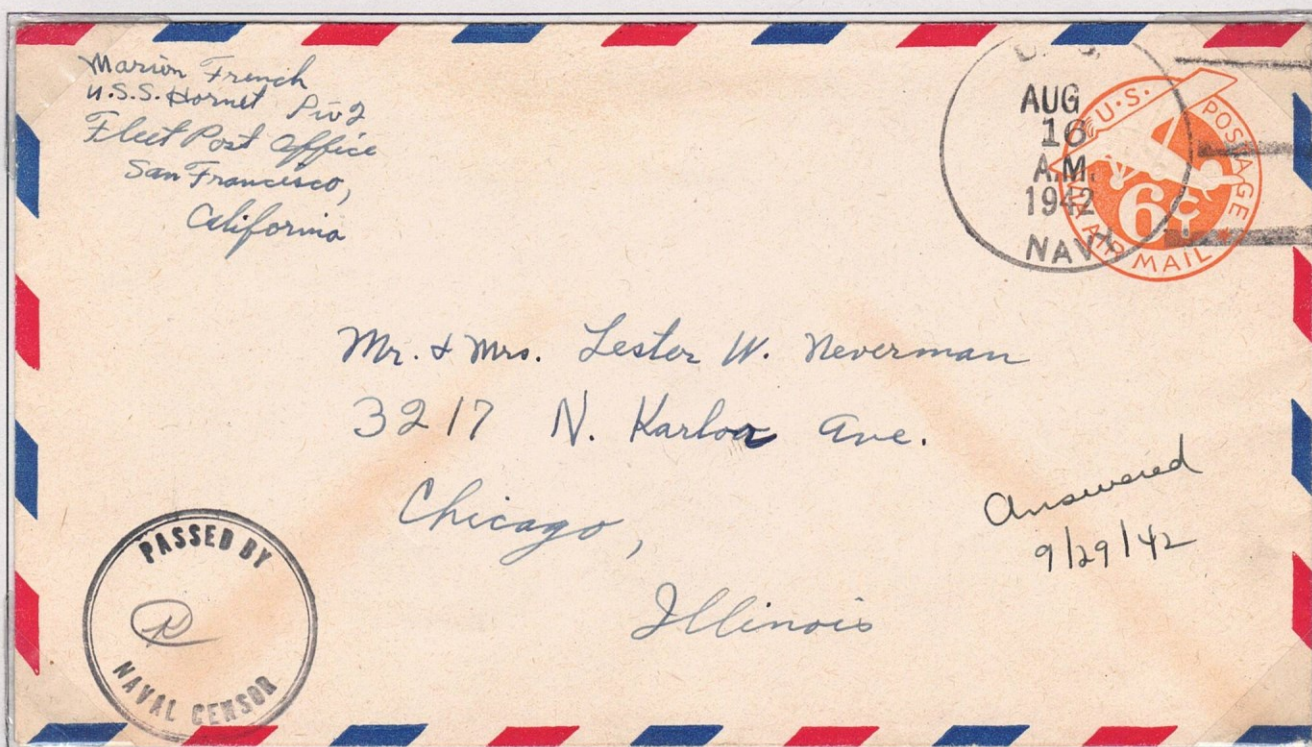 Marion French
U.S.S. Hornet Div 2
Fleet Post Office
San Francisco,
California
U.S.
AUG
16
A.M.
1942
NAVY
U.S. POSTAGE
VIA AIR MAIL
6¢
Mr. & Mrs. Lester W. Neverman
3217 N. Karlov Ave.
Chicago,
Illinois
Answered
9/29/42
PASSED BY
NAVAL CENSOR